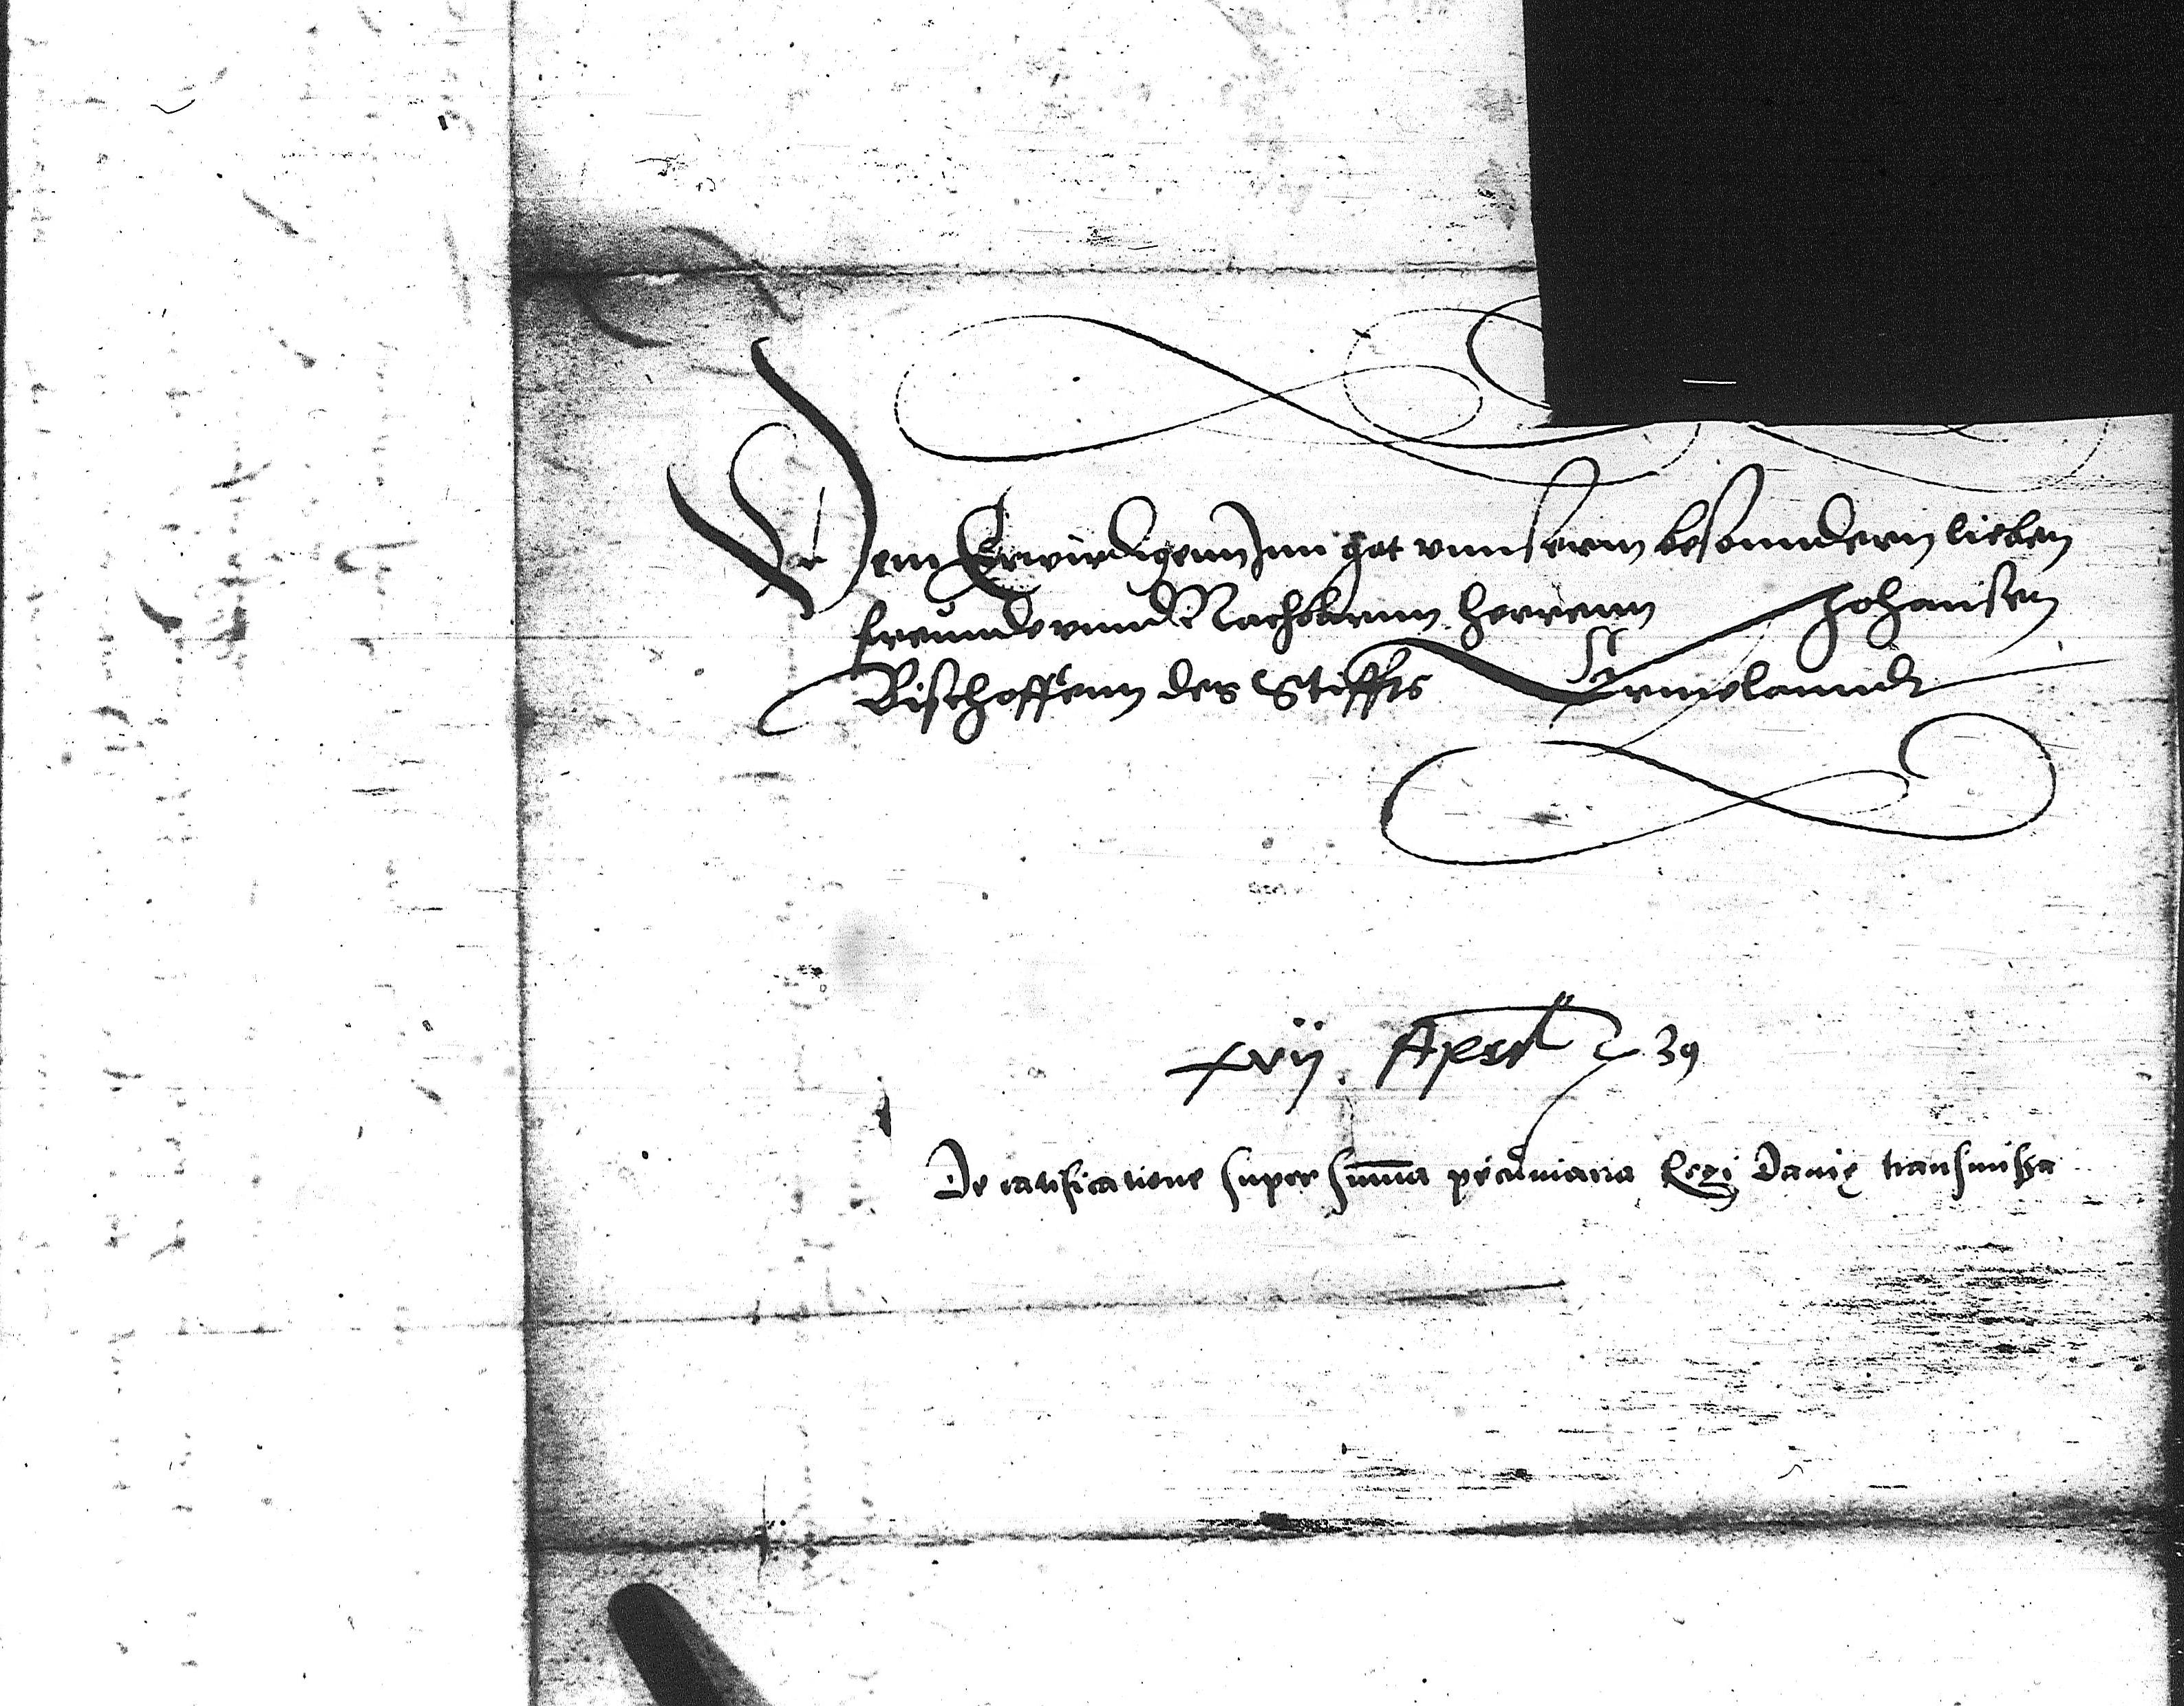 Dem Erwirdigenn Inn got vnnserm besonndern lieben
freunde vnnd Nachbarnn herrenn Johansen
Bischoffenn des Stiffts Ermelanndt
xvij April 39
De ratificatione super summa pecuniaria Regi Danię transmissa